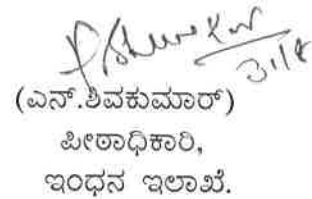 31/8
(ಎನ್.ಶಿವಕುಮಾರ್)
ಪೀಠಾಧಿಕಾರಿ,
ಇಂಧನ ಇಲಾಖೆ.